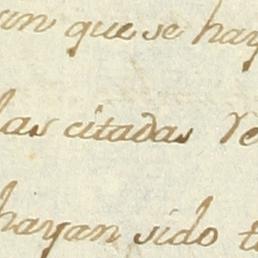 un que se hay
las citadas Re
hayan sido t